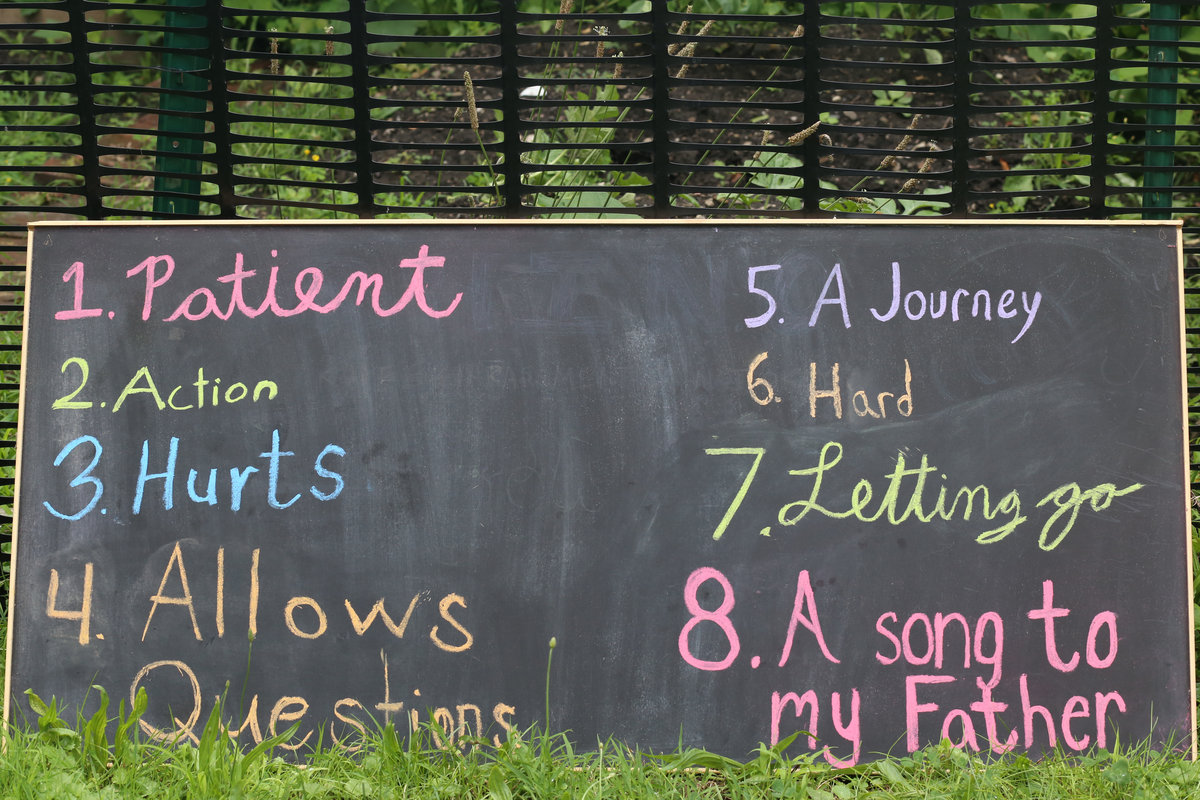 1. Patient
2. Action
3. Hurts
4. Allows
Questions
5. A Journey
6. Hard
7. Letting go
8. A song to
my Father